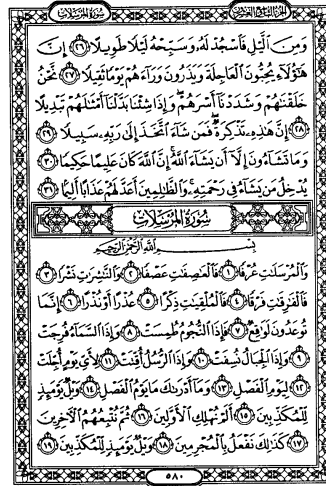 الجزء التاسع والعشرون سورة المرسلات
وَمِنَ ٱلَّيْلِ فَٱسْجُدْ لَهُۥ وَسَبِّحْهُ لَيْلًا طَوِيلًا ٢٦ إِنَّ
هَٰٓؤُلَآءِ يُحِبُّونَ ٱلْعَاجِلَةَ وَيَذَرُونَ وَرَآءَهُمْ يَوْمًا ثَقِيلًا ٢٧ نَّحْنُ
خَلَقْنَٰهُمْ وَشَدَدْنَآ أَسْرَهُمْ وَإِذَا شِئْنَا بَدَّلْنَآ أَمْثَٰلَهُمْ تَبْدِيلًا
٢٨ إِنَّ هَٰذِهِۦ تَذْكِرَةٌ فَمَن شَآءَ ٱتَّخَذَ إِلَىٰ رَبِّهِۦ سَبِيلًا ٢٩
وَمَا تَشَآءُونَ إِلَّآ أَن يَشَآءَ ٱللَّهُ إِنَّ ٱللَّهَ كَانَ عَلِيمًا حَكِيمًا ٣٠
يُدْخِلُ مَن يَشَآءُ فِى رَحْمَتِهِۦ وَٱلظَّٰلِمِينَ أَعَدَّ لَهُمْ عَذَابًا أَلِيمًا ٣١
سورة المرسلات
بِسْمِ ٱللَّهِ ٱلرَّحْمَٰنِ ٱلرَّحِيمِ
وَٱلْمُرْسَلَٰتِ عُرْفًا ١ فَٱلْعَٰصِفَٰتِ عَصْفًا ٢ وَٱلنَّٰشِرَٰتِ نَشْرًا ٣
فَٱلْفَٰرِقَٰتِ فَرْقًا ٤ فَٱلْمُلْقِيَٰتِ ذِكْرًا ٥ عُذْرًا أَوْ نُذْرًا ٦ إِنَّمَا
تُوعَدُونَ لَوَٰقِعٌ ٧ فَإِذَا ٱلنُّجُومُ طُمِسَتْ ٨ وَإِذَا ٱلسَّمَآءُ فُرِجَتْ
٩ وَإِذَا ٱلْجِبَالُ نُسِفَتْ ١٠ وَإِذَا ٱلرُّسُلُ أُقِّتَتْ ١١ لِأَىِّ يَوْمٍ أُجِّلَتْ
١٢ لِيَوْمِ ٱلْفَصْلِ ١٣ وَمَآ أَدْرَىٰكَ مَا يَوْمُ ٱلْفَصْلِ ١٤ وَيْلٌ يَوْمَئِذٍ
لِّلْمُكَذِّبِينَ ١٥ أَلَمْ نُهْلِكِ ٱلْأَوَّلِينَ ١٦ ثُمَّ نُتْبِعُهُمُ ٱلْءَاخِرِينَ
١٧ كَذَٰلِكَ نَفْعَلُ بِٱلْمُجْرِمِينَ ١٨ وَيْلٌ يَوْمَئِذٍ لِّلْمُكَذِّبِينَ ١٩
٥٨٠